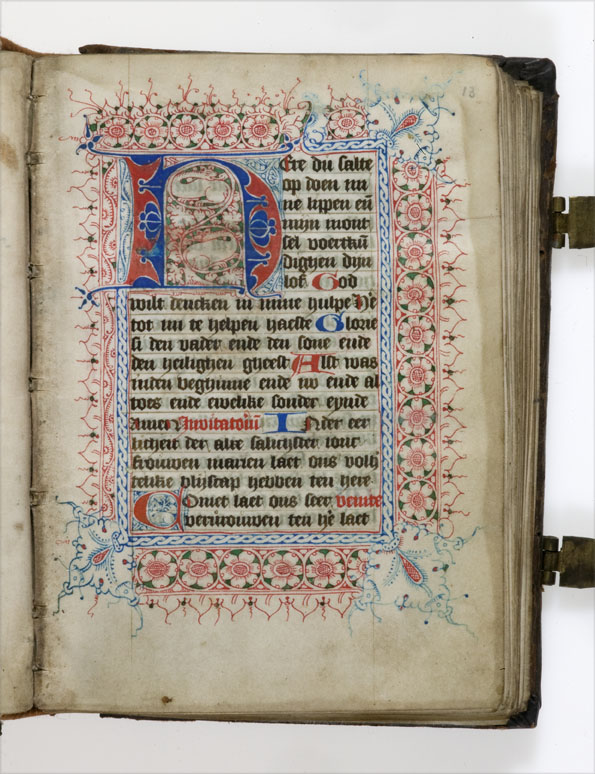 13
HEre du salte
op doen mi
ne lippen eñ
mijn mont
sel voerkū
dighen dijn
lof God
wilt dencken in mine hulpe He
tot mi te helpen haeste Glorie
si den vader ende den sone ende
den heilighen gheest Alst was
inden beghinne ende nv ende al
toes ende ewelike sonder eynde
Amen Invitatoriū INder eer
licheit der alre salichster ionc
frouwen marien laet ons volh
telike blijscap hebben ten here
Comet laet ons seer venite
vervrouwen ten hē laet